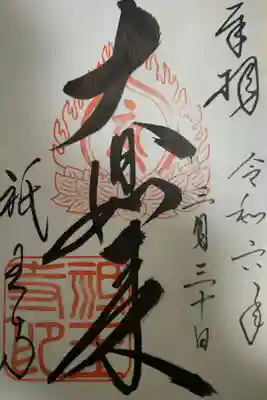 奉拝
令和六年
三月三十日
大日如来
祇王寺
祇王寺印